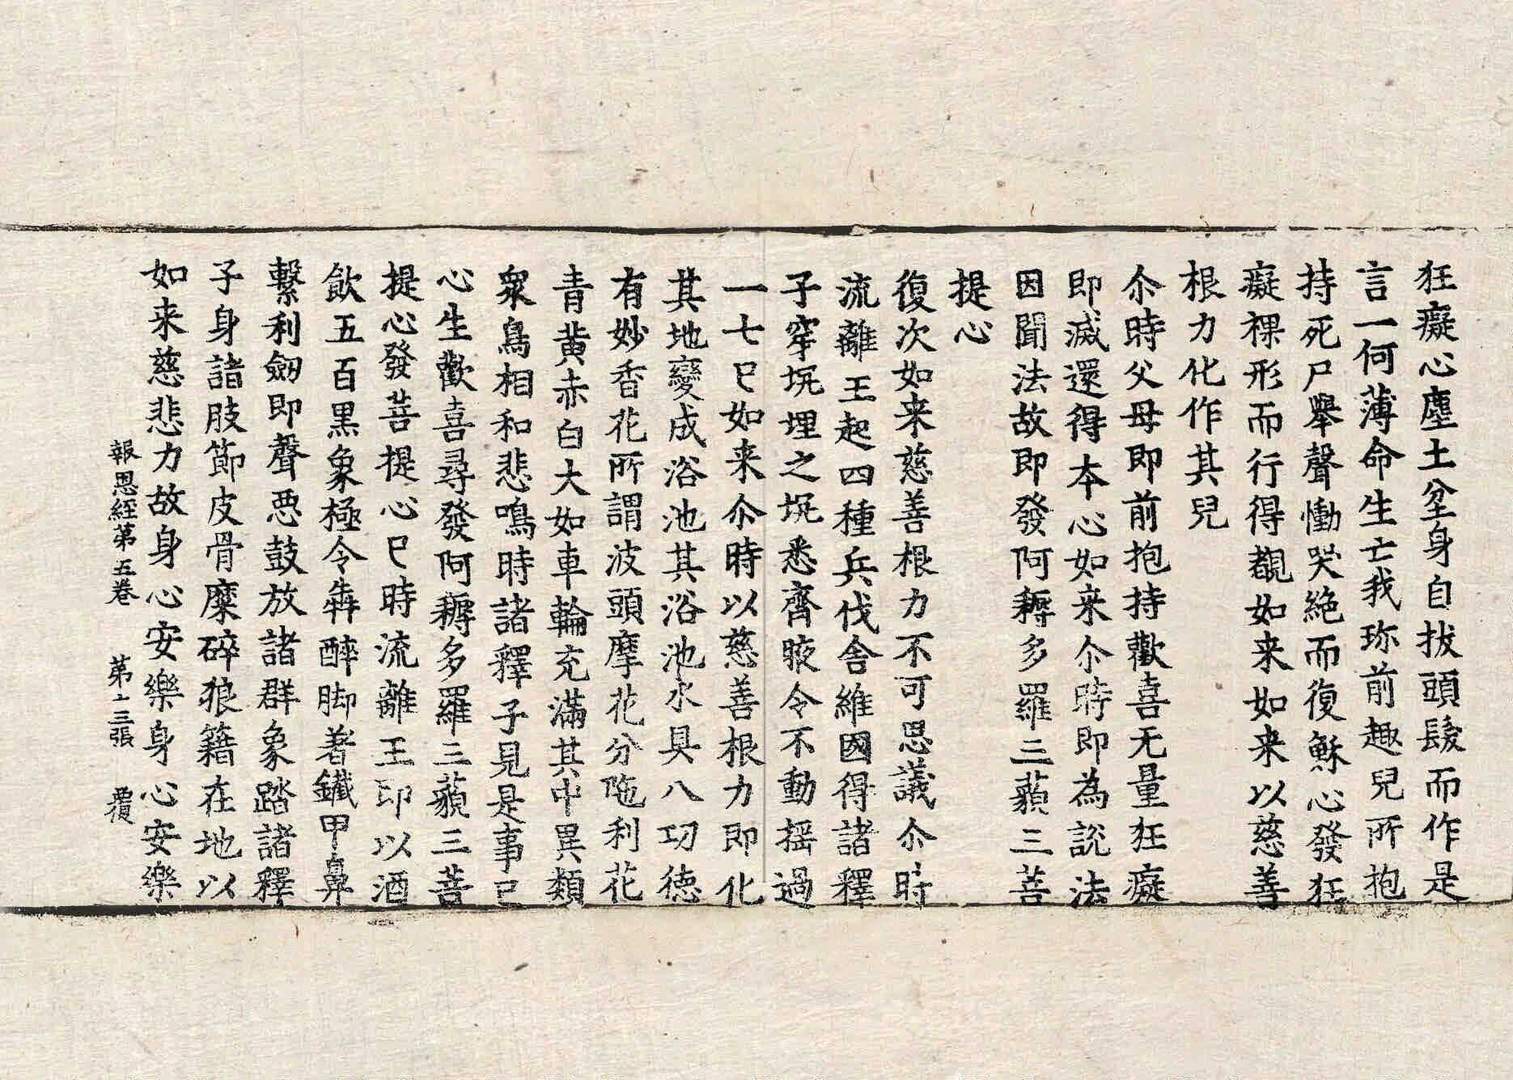 狂癡心塵土坌身自拔頭髮而作是
言一何薄命生亡我珎前趣兒所抱
持死尸舉聲慟哭絶而復穌心發狂
癡裸形而行得覩如来如来以慈善
根力化作其兒
尒時父母即前抱持歡喜无量狂癡
即滅還得本心如来尒時即為説法
因聞法故即發阿耨多羅三藐三菩
提心
復次如来慈善根力不可思議尒時
流離王起四種兵伐舎維國得諸釋
子穿坑埋之坑悉齊腋令不動摇過
一七已如来尒時以慈善根力即化
其地變成浴池其浴池水具八功徳
有妙香花所謂波頭摩花分陁利花
青黄赤白大如車輪充滿其中異類
衆鳥相和悲鳴時諸釋子見是事已
心生歡喜尋發阿耨多羅三藐三菩
提心發菩提心已時流離王即以酒
飲五百黒象極令犇醉脚著鐵甲鼻
繫利劒即聲恶鼓放諸群象踏諸釋
子身諸肢節皮骨糜碎狼籍在地以
如来慈悲力故身心安樂身心安樂
報恩経第五巻 第十三張 覆